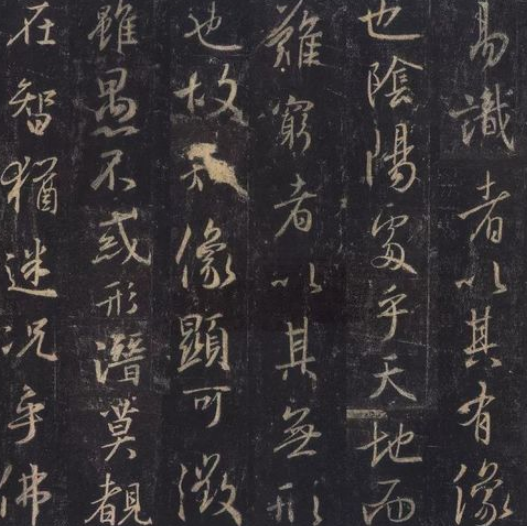 易識者以其有像
也陰陽處乎天地而
難窮者以其無形
也故像顯可徵
雖愚不惑形潛莫覩
在智猶迷況乎佛